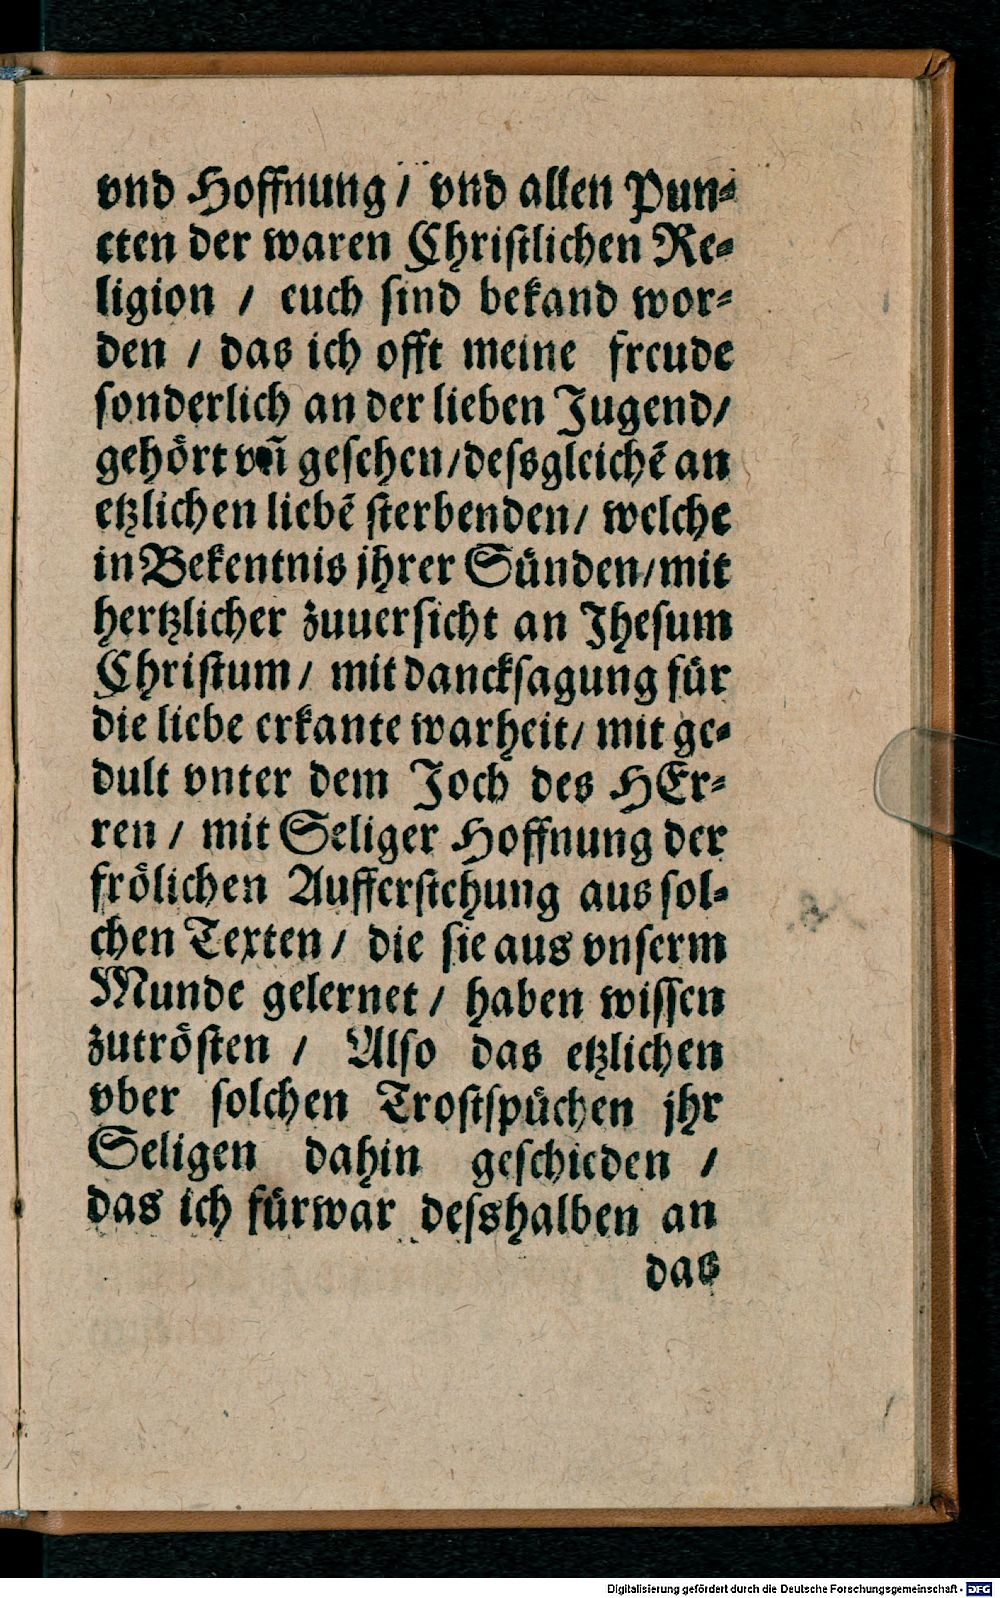 vnd Hoffnung / vnd allen Pun-
cten der waren Christlichen Re-
ligion / euch sind bekand wor-
den / das ich offt meine freude
sonderlich an der lieben Jugend/
gehört vñ gesehen/dessgleichẽ an
etzlichen liebẽ sterbenden/ welche
in Bekentnis jhrer Sünden/mit
hertzlicher zuuersicht an Jhesum
Christum/ mit dancksagung für
die liebe erkante warheit/ mit ge-
dult vnter dem Joch des HEr-
ren / mit Seliger Hoffnung der
frölichen Aufferstehung aus sol-
chen Texten/ die sie aus vnserm
Munde gelernet / haben wissen
zutrösten / Also das etzlichen
vber solchen Trostspüchen jhr
Seligen dahin geschieden /
das ich fürwar dessshalben an
das
Digitalisierung gefördert durch die Deutsche Forschungsgemeinschaft - DFG